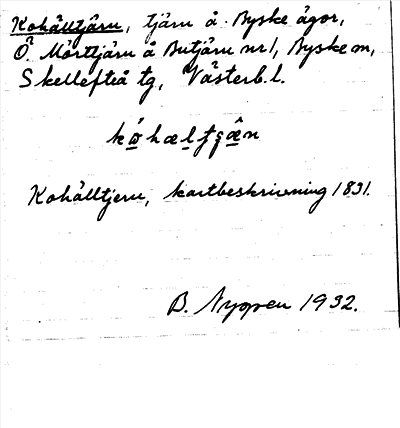 Kohälltjärn, tjärn å Byske ägor,
Ö. Mörttjärn å Butjärn nr 1, Byske sn,
Skellefteå tg, Västerb. l.
Kohälltjern, kartbeskrivning 1831.
B. Nygren 1932.